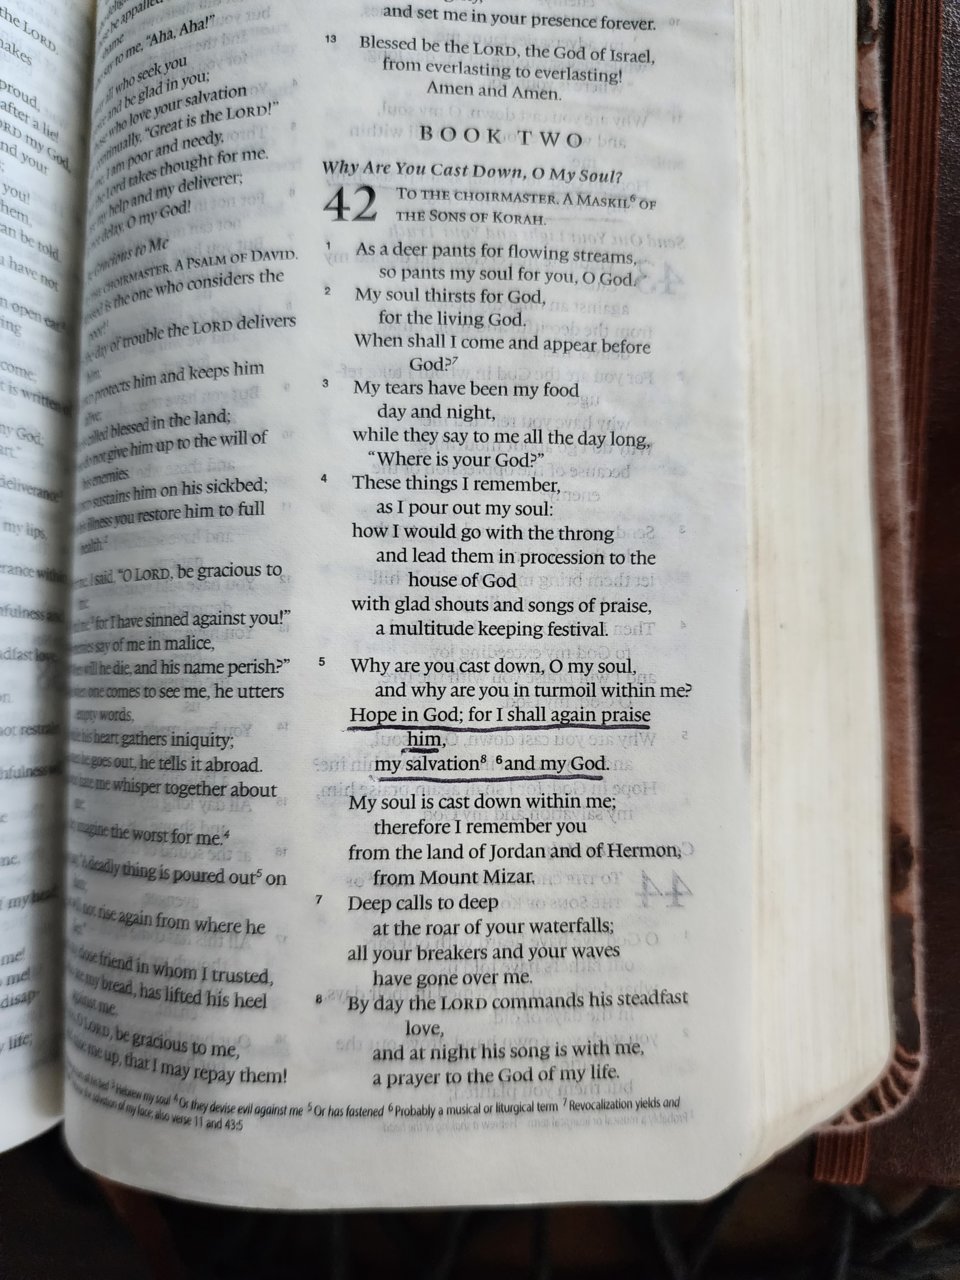 the LORD.
makes
proud,
after a lie!
LORD my God,
and your
you!
them,
can be told.
have not
an open ear.
come;
it is written of
my God;
deliverance
my lips,
me!
me!
life;
to me, "Aha, Aha!"
who seek you
and be glad in you;
who love your salvation
continually, "Great is the LORD!"
I am poor and needy,
the Lord takes thought for me.
my help and my deliverer;
delay, O my God!
Gracious to Me
CHOIRMASTER. A PSALM OF DAVID.
is the one who considers the
poor!
day of trouble the LORD delivers
him;
protects him and keeps him
alive;
called blessed in the land;
do not give him up to the will of
his enemies.
sustains him on his sickbed;
illness you restore him to full
health.²
I said, "O LORD, be gracious to
for I have sinned against you!"
say of me in malice,
will he die, and his name perish?"
one comes to see me, he utters
empty words,
his heart gathers iniquity;
he goes out, he tells it abroad.
hate me whisper together about
imagine the worst for me.⁴
deadly thing is poured out⁵ on
not rise again from where he
close friend in whom I trusted,
my bread, has lifted his heel
against me.
O LORD, be gracious to me,
me up, that I may repay them!
and set me in your presence forever.
13 Blessed be the LORD, the God of Israel,
from everlasting to everlasting!
Amen and Amen.
BOOK TWO
Why Are You Cast Down, O My Soul?
42 TO THE CHOIRMASTER. A MASKIL⁶ OF
THE SONS OF KORAH.
1 As a deer pants for flowing streams,
so pants my soul for you, O God.
2 My soul thirsts for God,
for the living God.
When shall I come and appear before
God?⁷
3 My tears have been my food
day and night,
while they say to me all the day long,
"Where is your God?"
4 These things I remember,
as I pour out my soul:
how I would go with the throng
and lead them in procession to the
house of God
with glad shouts and songs of praise,
a multitude keeping festival.
5 Why are you cast down, O my soul,
and why are you in turmoil within me?
Hope in God; for I shall again praise
him,
my salvation⁸ ⁶and my God.
My soul is cast down within me;
therefore I remember you
from the land of Jordan and of Hermon,
from Mount Mizar.
7 Deep calls to deep
at the roar of your waterfalls;
all your breakers and your waves
have gone over me.
8 By day the LORD commands his steadfast
love,
and at night his song is with me,
a prayer to the God of my life.
³ Hebrew my soul ⁴ Or they devise evil against me ⁵ Or has fastened ⁶ Probably a musical or liturgical term ⁷ Revocalization yields and
salvation of my face; also verse 11 and 43:5